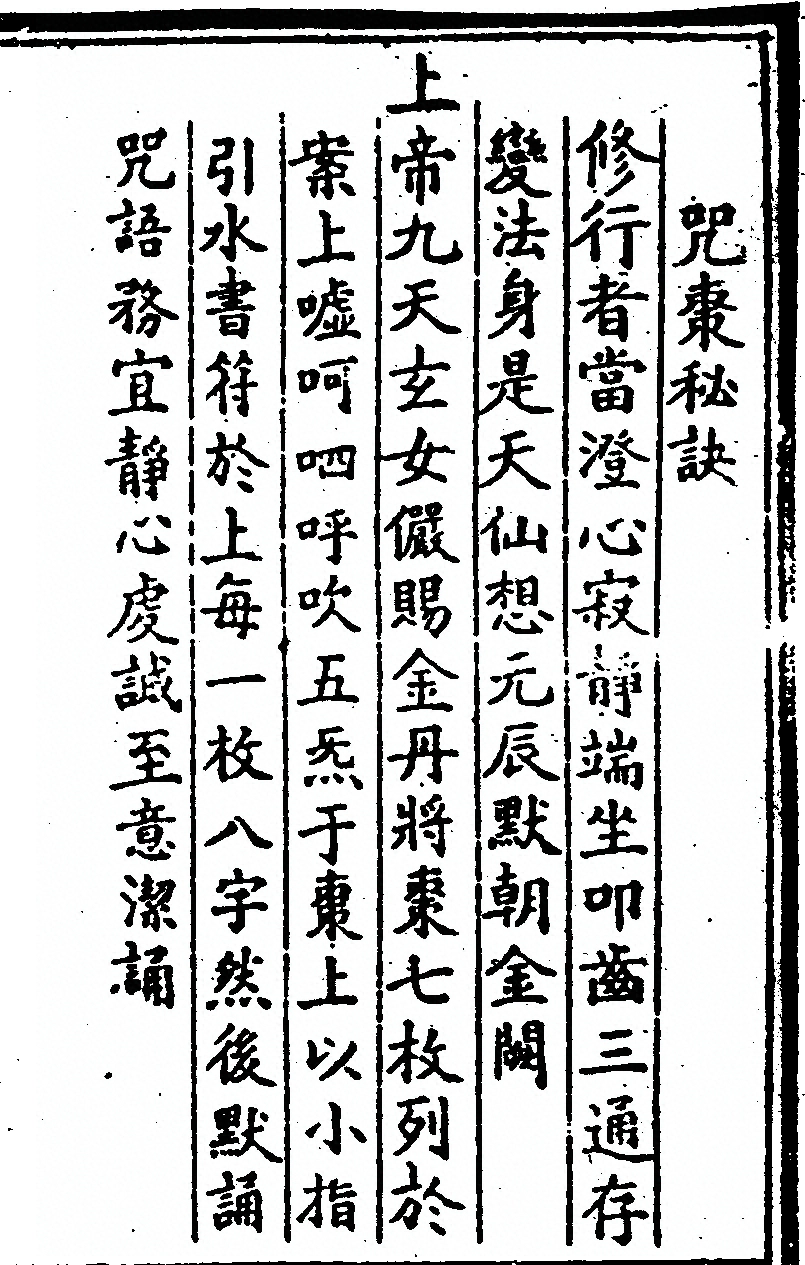 咒棗秘訣
修行者當澄心寂靜端坐叩齒三通存
變法身是天仙想元辰默朝金闕
上帝九天玄女儼賜金丹將棗七枚列於
案上噓呵呬呼吹五炁于棗上以小指
引水書符於上每一枚八字然後默誦
咒語務宜靜心虔誠至意潔誦